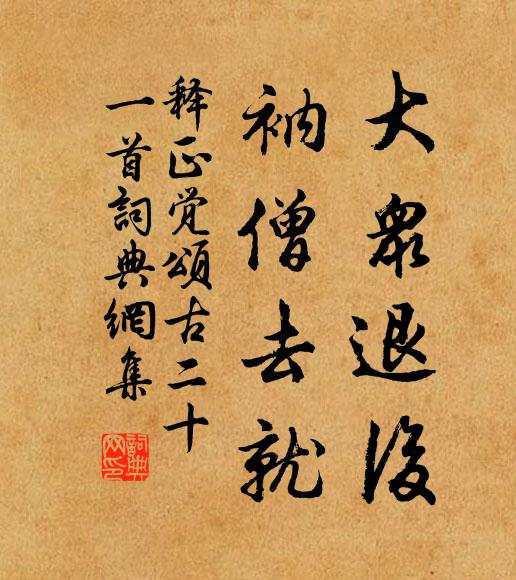 大衆退後
衲僧去就
释正觉頌古二十
一首詞典網集
詞典网印